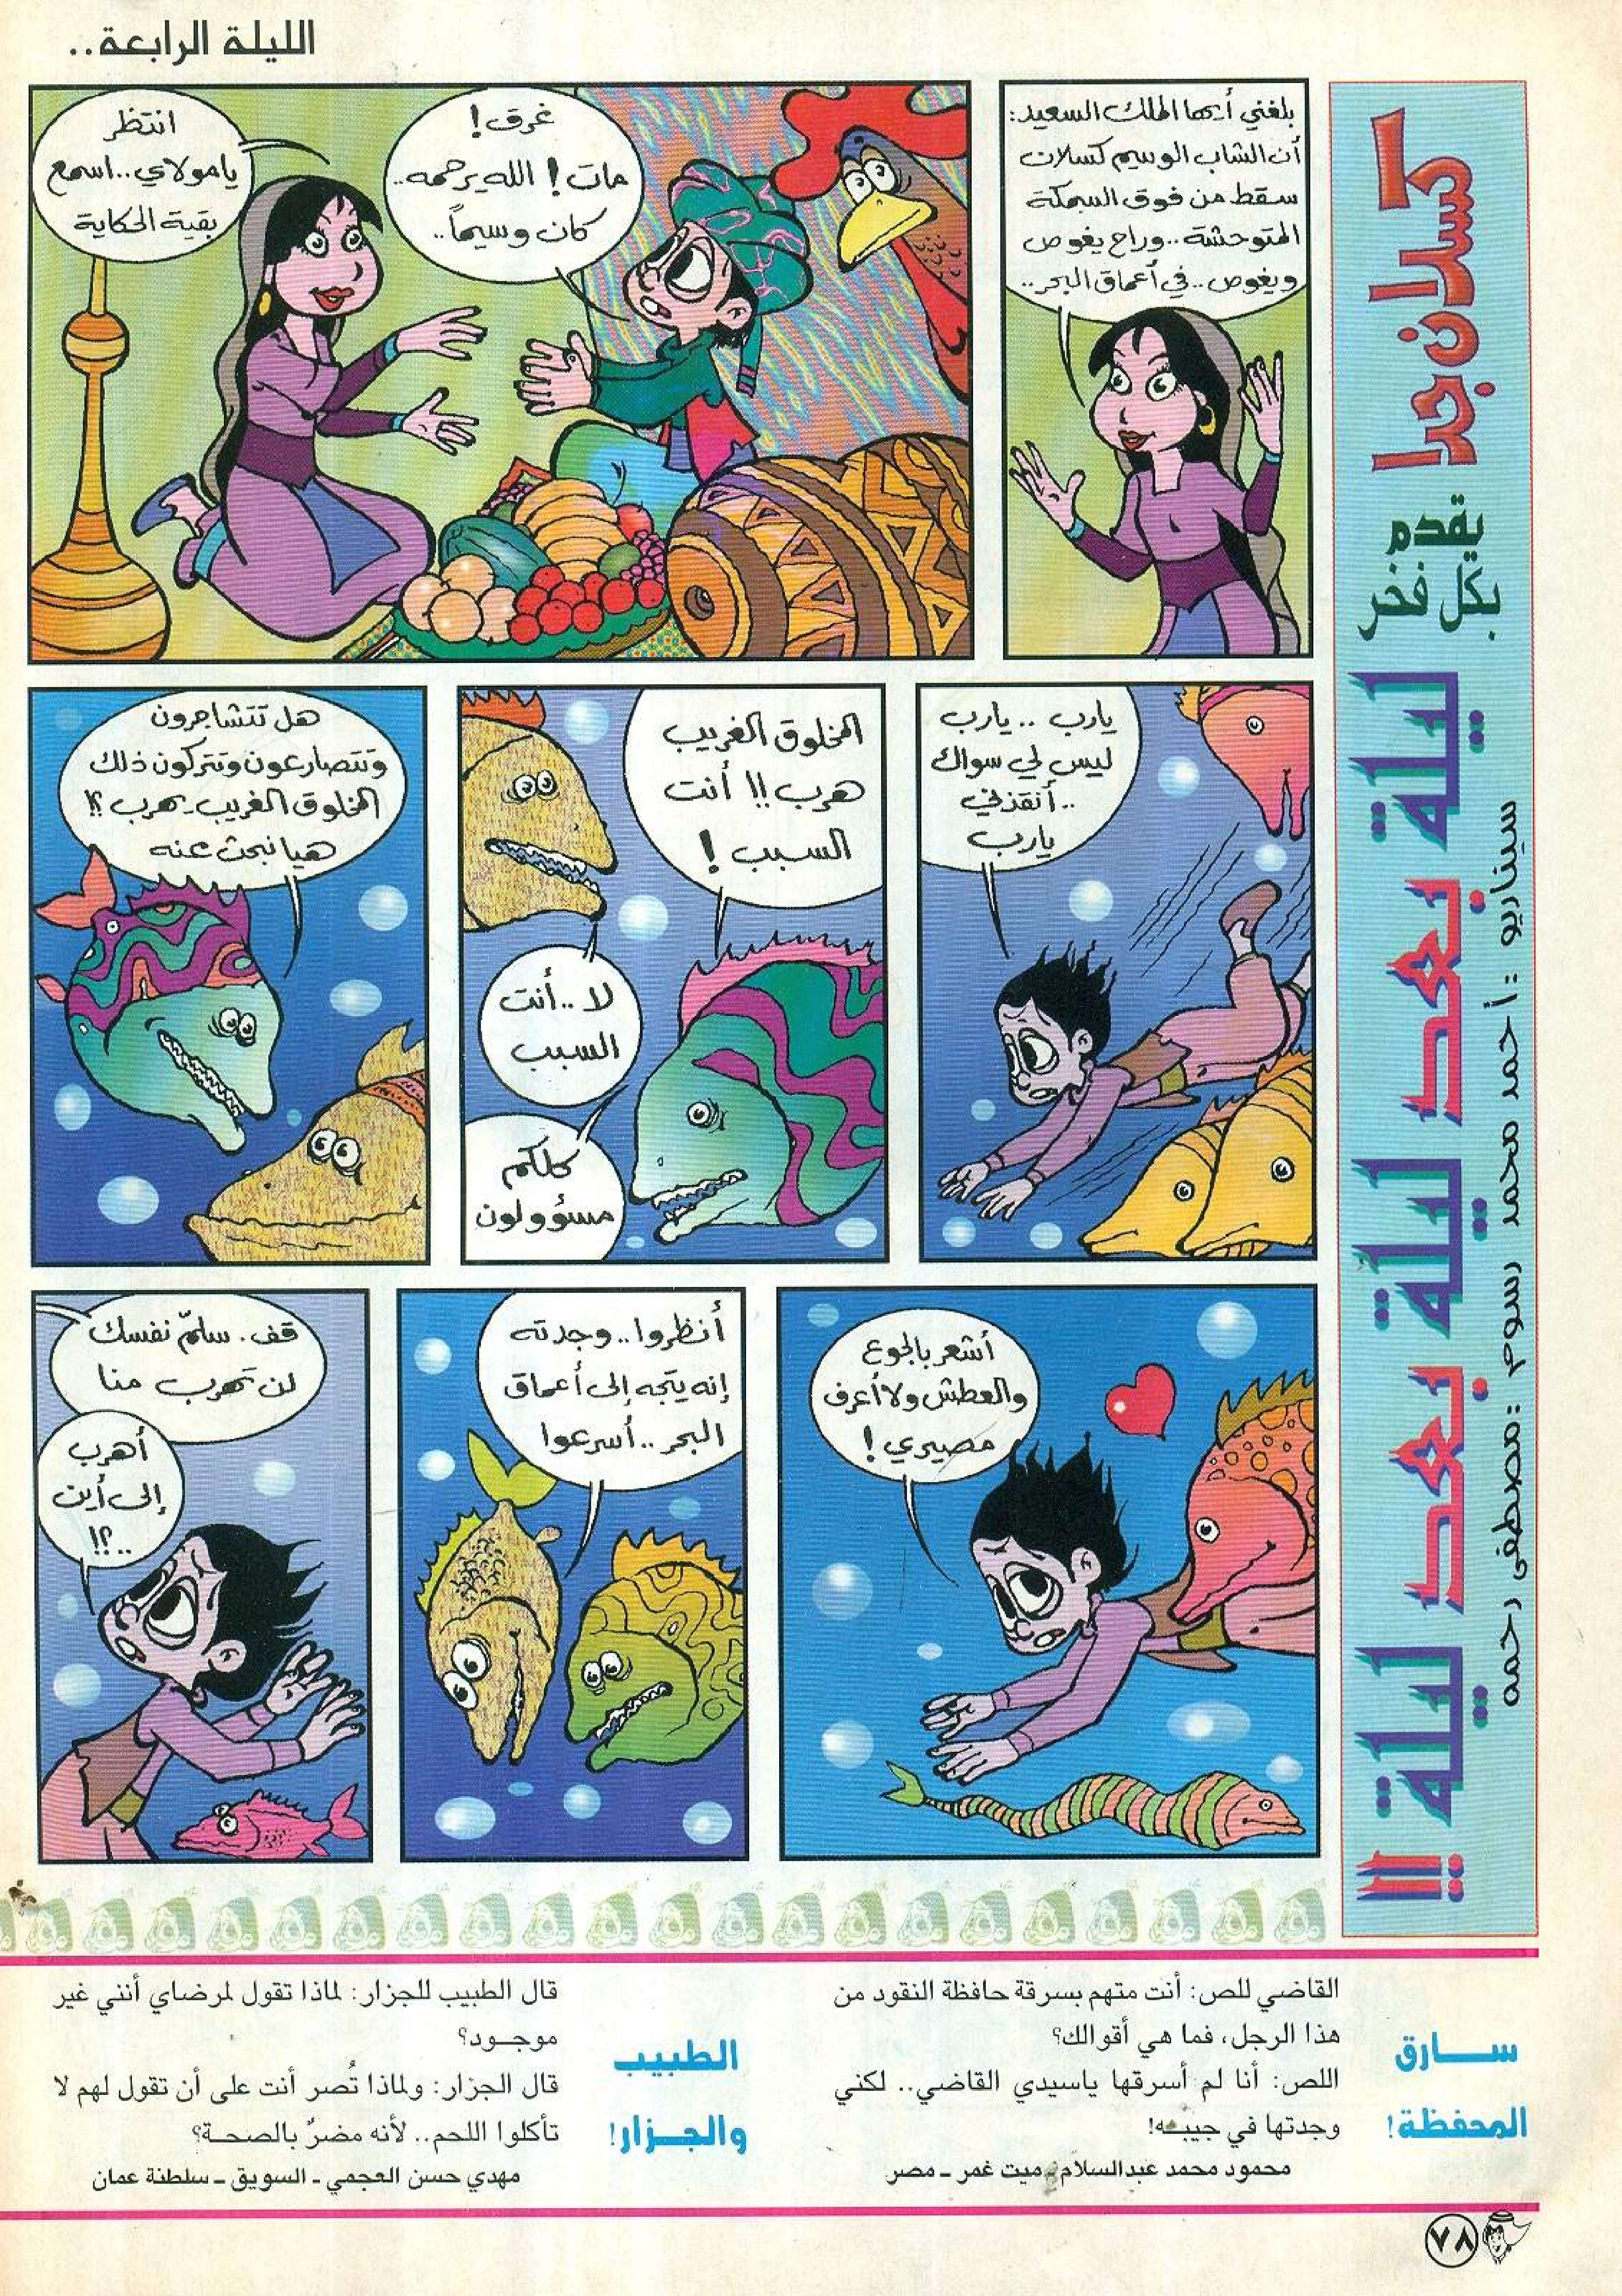 الليلة الرابعة..
كسلان جدا
يقدم
بكل فخر
ليلة بعد ليلة بعد ليلة !!
سيناريو : أحمد محمد رسوم : مصطفى رحمه
بلغني أيها الملك السعيد:
أن الشاب الوسيم كسلان
سقط من فوق السمكة
المتوحشة.. وراح يغوص
ويغوص.. في أعماق البحر..
غرق!
مات! الله يرحمه..
كان وسيماً..
انتظر
يامولاي.. اسمع
بقية الحكاية
يارب .. يارب
ليس لي سواك
..أنقذني
يارب
المخلوق الغريب
هرب!! أنت
السبب!
لا.. أنت
السبب
كلكم
مسؤولون
هل تتشاجرون
وتتصارعون وتتركون ذلك
المخلوق الغريب يهرب؟!
هيا نبحث عنه
أشعر بالجوع
والعطش ولا أعرف
مصيري!
أنظروا.. وجدته
إنه يتجه إلى أعماق
البحر.. أسرعوا
قف. سلّم نفسك
لن تهرب منا
أهرب
إلى أين
..؟!
سارق
المحفظة!
القاضي للص: أنت متهم بسرقة حافظة النقود من
هذا الرجل، فما هي أقوالك؟
اللص: أنا لم أسرقها ياسيدي القاضي.. لكني
وجدتها في جيبه!
محمود محمد عبدالسلام ـ ميت غمر ـ مصر
الطبيب
والجزار!
قال الطبيب للجزار: لماذا تقول لمرضاي أنني غير
موجود؟
قال الجزار: ولماذا تُصر أنت على أن تقول لهم لا
تأكلوا اللحم.. لأنه مضرٌ بالصحة؟
مهدي حسن العجمي ـ السويق ـ سلطنة عمان
٧٨